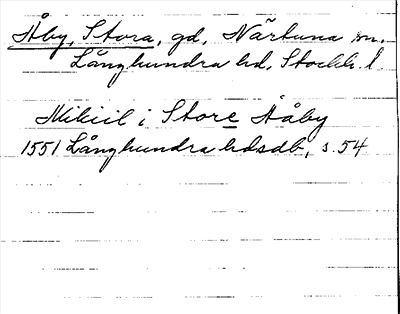 Åby, Stora, gd, Närtuna sn.
Långhundra hd, Stockh. l.
Mikiil i Store Aåby
1551 Långhundra hdsdb, s. 54